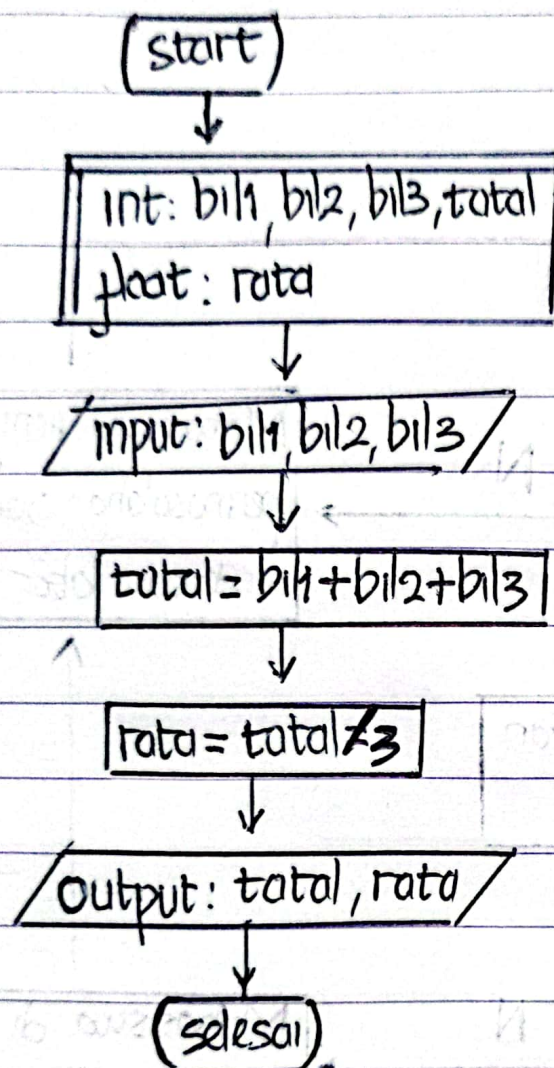 start
int: bil1, bil2, bil3, total
float: rata
input: bil1, bil2, bil3
total = bil1+bil2+bil3
rata = total/3
output: total, rata
selesai
N
N